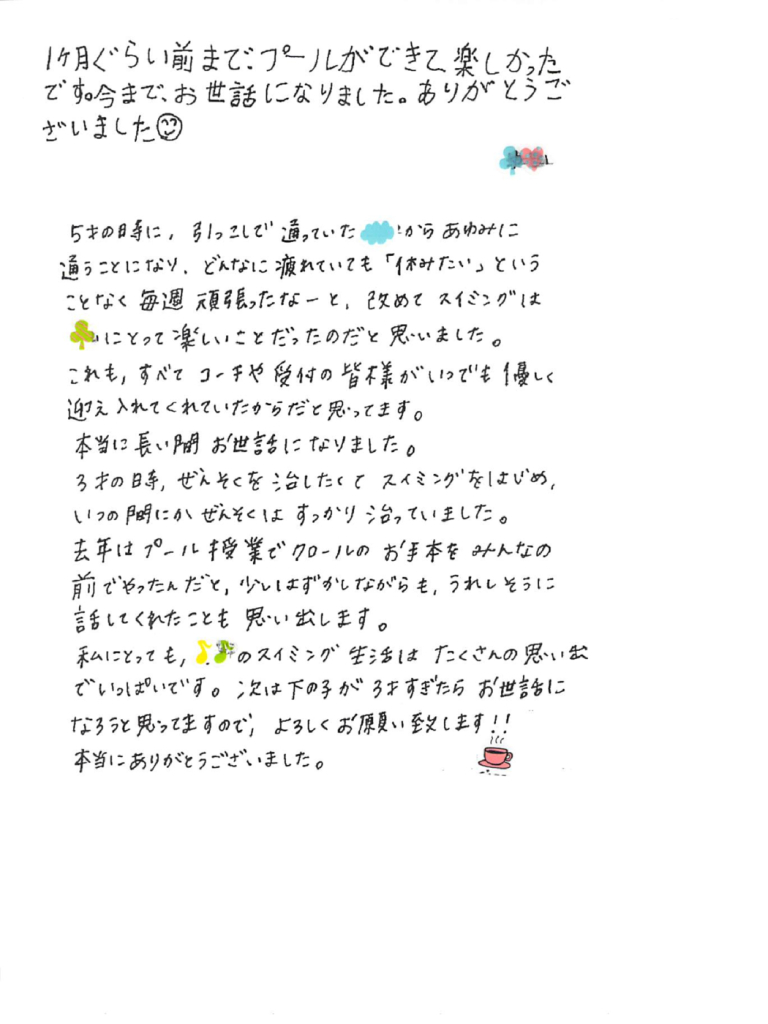 1ヶ月ぐらい前まで、プールができて、楽しかった
です。今まで、お世話になりました。ありがとうご
ざいました
5才の時に、引っこしで通っていた からあゆみに
通うことになり、どんなに疲れていても「休みたい」という
ことなく毎週頑張ったなーと、改めてスイミングは
にとって楽しいことだったのだと思いました。
これも、すべてコーチや受付の皆様がいつでも優しく
迎え入れてくれていたからだと思ってます。
本当に長い間お世話になりました。
3才の時、ぜんそくを治したくてスイミングをはじめ、
いつの間にかぜんそくはすっかり治っていました。
去年はプール授業でクロールのお手本をみんなの
前でやったんだと、少しはずかしながらも、うれしそうに
話してくれたことも思い出します。
私にとっても、 のスイミング生活はたくさんの思い出
でいっぱいです。次は下の子が3才すぎたらお世話に
なろうと思ってますので、よろしくお願い致します!!
本当にありがとうございました。